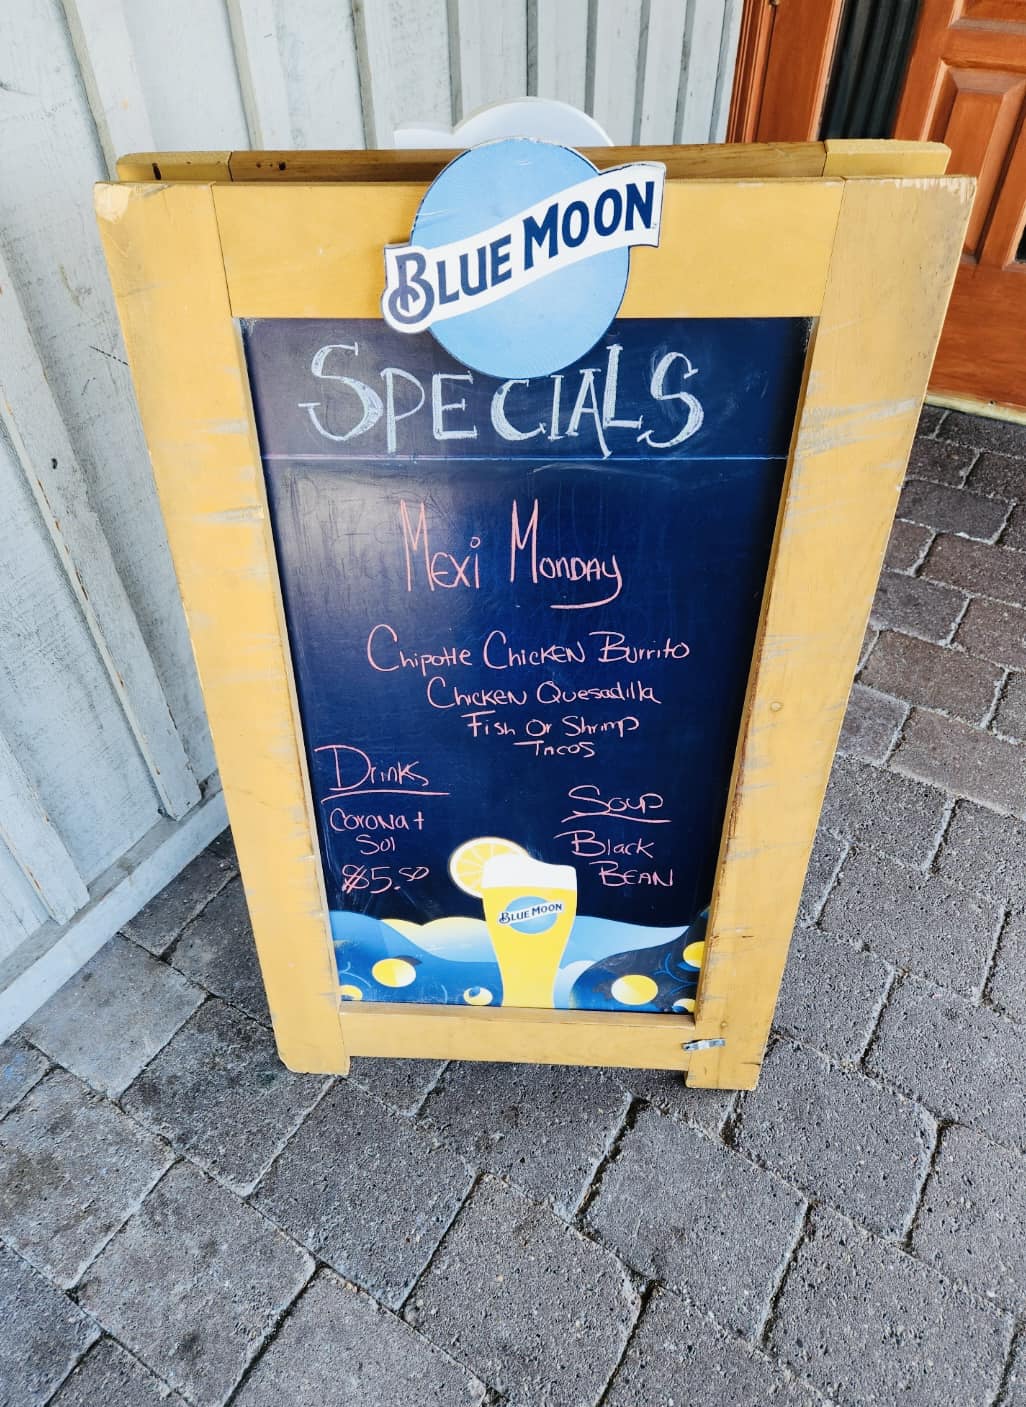 BLUE MOON
SPECIALS
Mexi Monday
Chipotle Chicken Burrito
Chicken Quesadilla
Fish Or Shrimp
Tacos
Drinks
Corona +
Sol
$5.50
Soup
Black
Bean
BLUE MOON